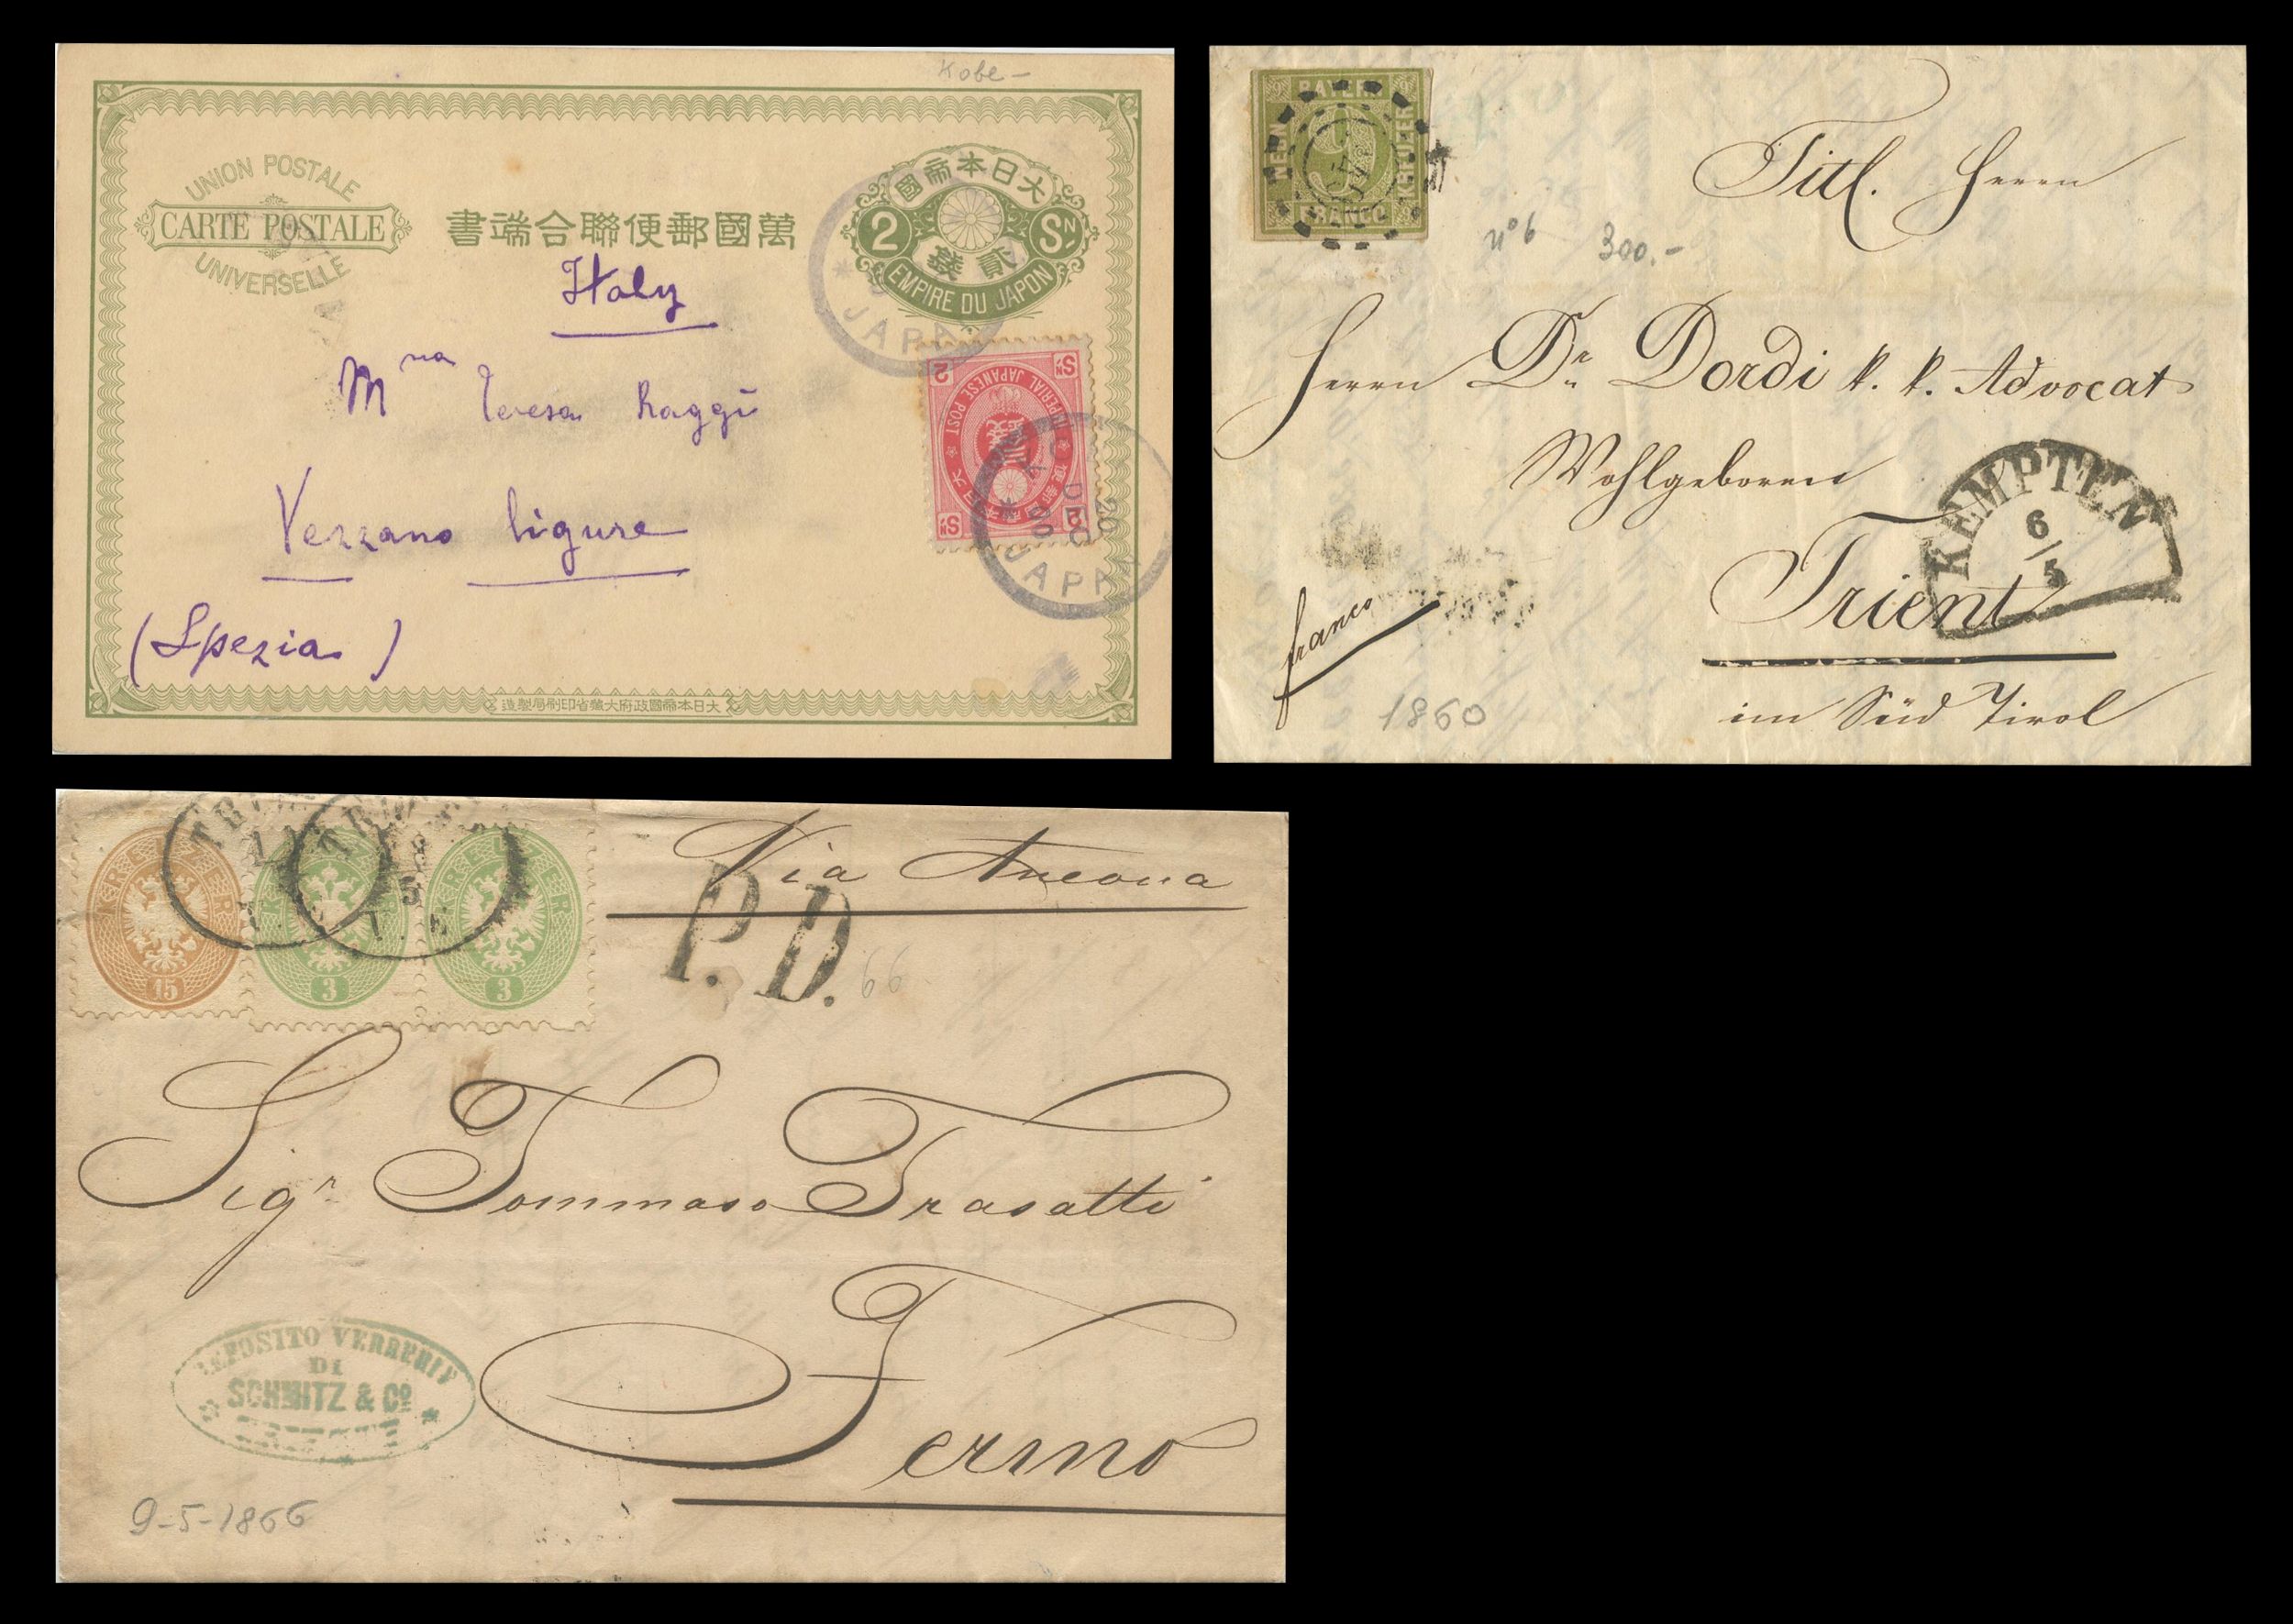 Kobe -
UNION POSTALE
CARTE POSTALE
UNIVERSELLE
書端合聯便郵國萬
國帝本日大
2 SN
錢貳
EMPIRE DU JAPON
JAPAN
Italy
Mna Teresa Raggi
Vezzano Ligure
(Spezia)
2 SN
IMPERIAL JAPANESE POST
SN 2
20
DEC
JAPAN
造製局刷印省藏大府政國帝本日大
BAYERN
NEUN
9
KREUZER
FRANCO
n° 6 300.-
Titl. Herrn
Herrn Dr. Dordi k. k. Advocat
Wohlgeboren
KEMPTEN
6/5
Trient
franco
1860
im Süd Tirol
KREUZER
15
KREUZER
3
KREUZER
3
Via Ancona
P. D.
66
Sigr. Tommaso Trasatti
DEPOSITO VERRERIE
DI
SCHMITZ & Co
Fermo
9-5-1866